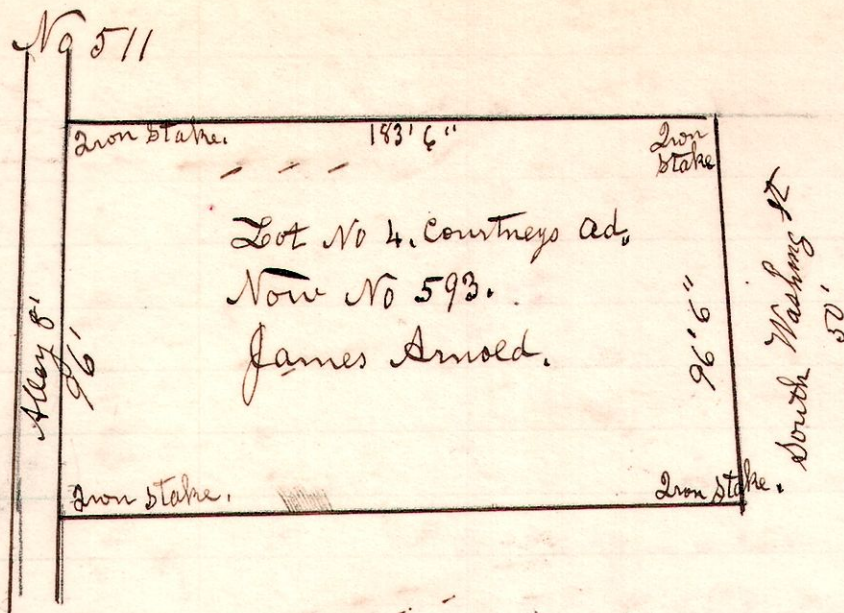 No 511
Iron Stake.
183' 6"
Iron
Stake
Lot No 4. Courtneys Ad.
Now No 593.
James Arnold.
Alley 8'
96'
96' 6"
South Washing St
50'
Iron Stake.
Iron Stake.